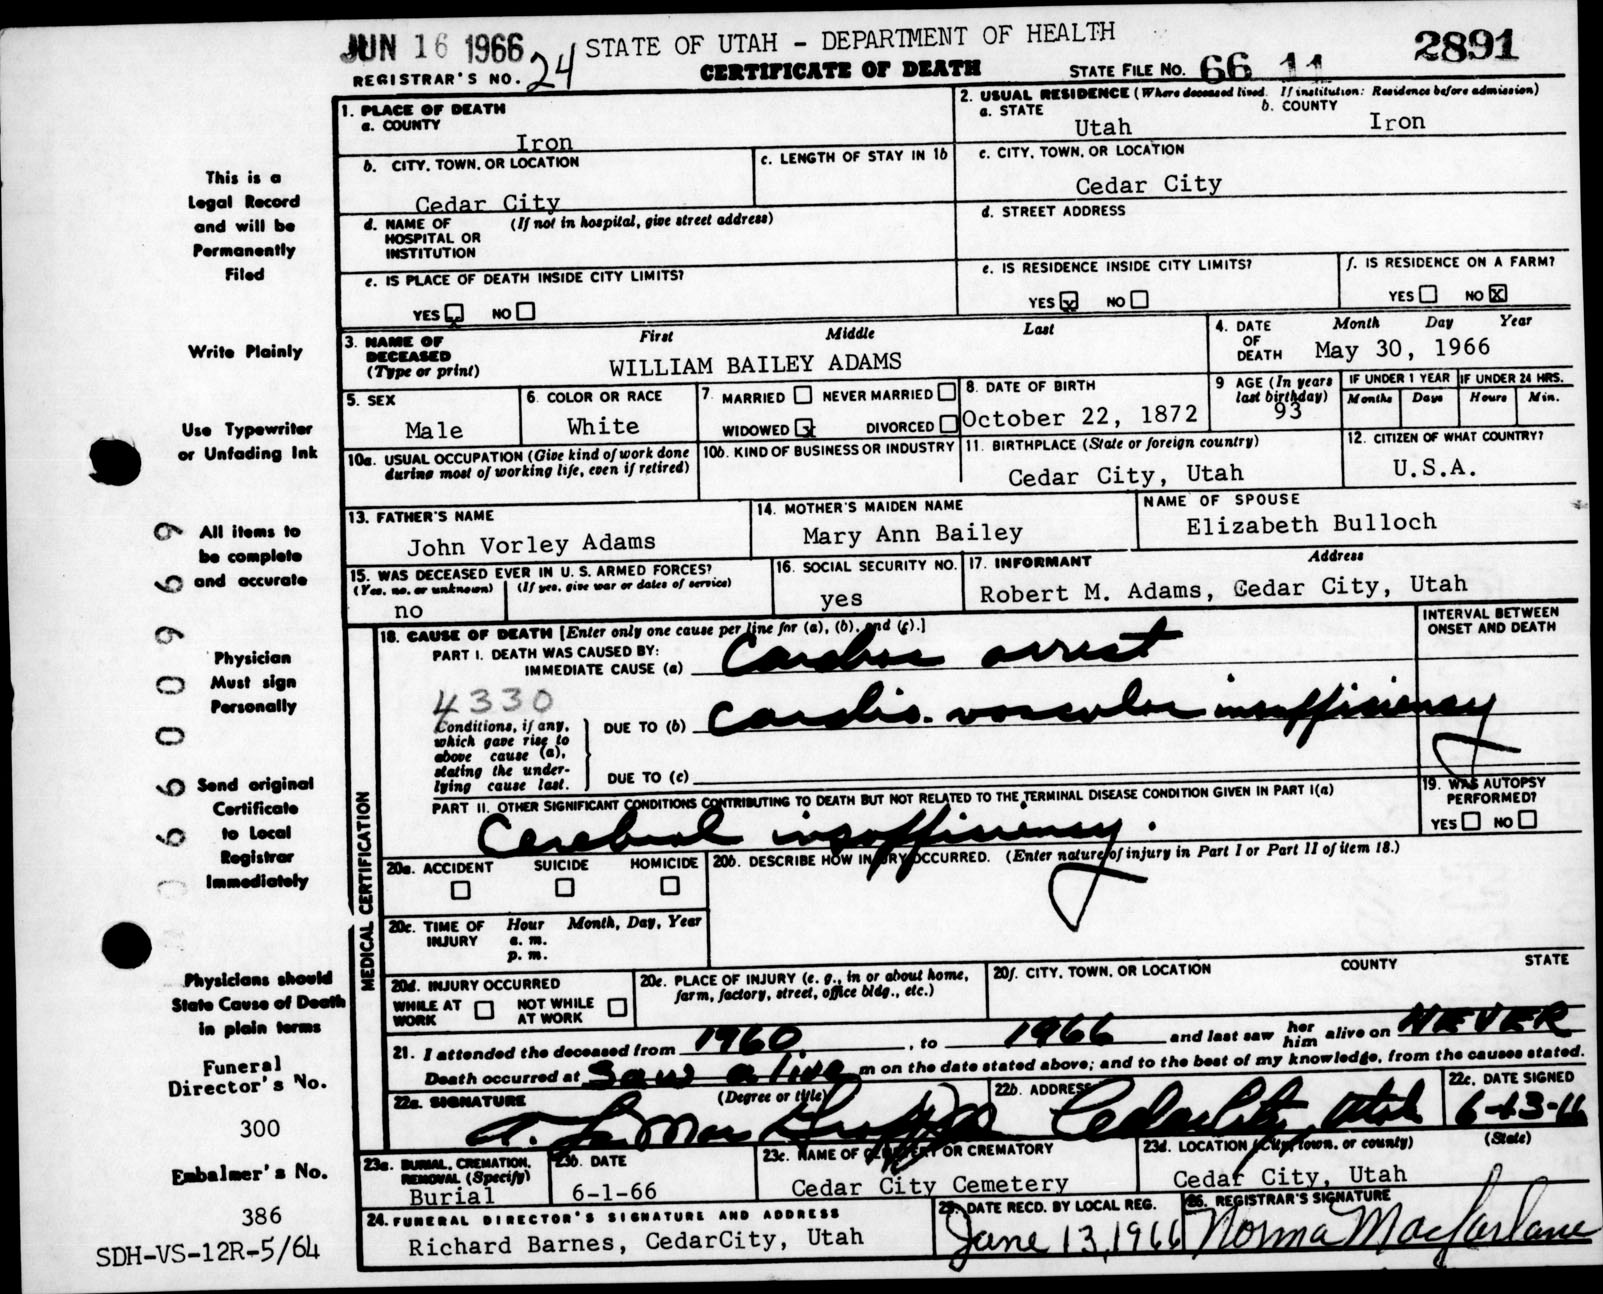 JUN 16 1966
REGISTRAR'S NO. 24
STATE OF UTAH - DEPARTMENT OF HEALTH
CERTIFICATE OF DEATH
STATE FILE NO. 66 11 2891
1. PLACE OF DEATH
a. COUNTY
Iron
2. USUAL RESIDENCE (Where deceased lived. If institution: Residence before admission)
a. STATE
Utah
b. COUNTY
Iron
b. CITY, TOWN, OR LOCATION
Cedar City
c. LENGTH OF STAY IN 1b
c. CITY, TOWN, OR LOCATION
Cedar City
d. NAME OF HOSPITAL OR INSTITUTION
(If not in hospital, give street address)
d. STREET ADDRESS
e. IS PLACE OF DEATH INSIDE CITY LIMITS?
YES x NO
e. IS RESIDENCE INSIDE CITY LIMITS?
YES x NO
f. IS RESIDENCE ON A FARM?
YES NO X
3. NAME OF DECEASED (Type or print)
First Middle Last
WILLIAM BAILEY ADAMS
4. DATE OF DEATH
Month Day Year
May 30, 1966
5. SEX
Male
6. COLOR OR RACE
White
7. MARRIED NEVER MARRIED
WIDOWED x DIVORCED
8. DATE OF BIRTH
October 22, 1872
9 AGE (In years last birthday)
93
IF UNDER 1 YEAR
Months Days
IF UNDER 24 HRS.
Hours Min.
10a. USUAL OCCUPATION (Give kind of work done during most of working life, even if retired)
10b. KIND OF BUSINESS OR INDUSTRY
11. BIRTHPLACE (State or foreign country)
Cedar City, Utah
12. CITIZEN OF WHAT COUNTRY?
U.S.A.
13. FATHER'S NAME
John Vorley Adams
14. MOTHER'S MAIDEN NAME
Mary Ann Bailey
NAME OF SPOUSE
Elizabeth Bulloch
15. WAS DECEASED EVER IN U. S. ARMED FORCES?
(Yes, no, or unknown) (If yes, give war or dates of service)
no
16. SOCIAL SECURITY NO.
yes
17. INFORMANT Address
Robert M. Adams, Cedar City, Utah
MEDICAL CERTIFICATION
18. CAUSE OF DEATH [Enter only one cause per line for (a), (b), and (c).]
INTERVAL BETWEEN ONSET AND DEATH
PART I. DEATH WAS CAUSED BY:
IMMEDIATE CAUSE (a) Cardiac arrest
4330
Conditions, if any, which gave rise to above cause (a), stating the underlying cause last.
DUE TO (b) Cardio-vascular insufficiency
DUE TO (c)
PART II. OTHER SIGNIFICANT CONDITIONS CONTRIBUTING TO DEATH BUT NOT RELATED TO THE TERMINAL DISEASE CONDITION GIVEN IN PART I(a)
Cerebral insufficiency.
19. WAS AUTOPSY PERFORMED?
YES NO
20a. ACCIDENT SUICIDE HOMICIDE
20b. DESCRIBE HOW INJURY OCCURRED. (Enter nature of injury in Part I or Part II of item 18.)
20c. TIME OF INJURY
Hour Month, Day, Year
a. m.
p. m.
20d. INJURY OCCURRED
WHILE AT WORK NOT WHILE AT WORK
20e. PLACE OF INJURY (e. g., in or about home, farm, factory, street, office bldg., etc.)
20f. CITY, TOWN, OR LOCATION COUNTY STATE
21. I attended the deceased from 1960, to 1966 and last saw her him alive on NEVER
Death occurred at saw alive m on the date stated above; and to the best of my knowledge, from the causes stated.
22a. SIGNATURE (Degree or title)
A. LaMar
22b. ADDRESS
Cedar City, Utah
22c. DATE SIGNED
6-13-66
23a. BURIAL, CREMATION, REMOVAL (Specify)
Burial
23b. DATE
6-1-66
23c. NAME OF CEMETERY OR CREMATORY
Cedar City Cemetery
23d. LOCATION (City, town, or county) (State)
Cedar City, Utah
24. FUNERAL DIRECTOR'S SIGNATURE AND ADDRESS
Richard Barnes, CedarCity, Utah
25. DATE RECD. BY LOCAL REG.
June 13, 1966
26. REGISTRAR'S SIGNATURE
Norma Macfarlane
This is a
Legal Record
and will be
Permanently
Filed
Write Plainly
Use Typewriter
or Unfading Ink
All items to
be complete
and accurate
Physician
Must sign
Personally
Send original
Certificate
to Local
Registrar
Immediately
Physicians should
State Cause of Death
in plain terms
Funeral
Director's No.
300
Embalmer's No.
386
SDH-VS-12R-5/64